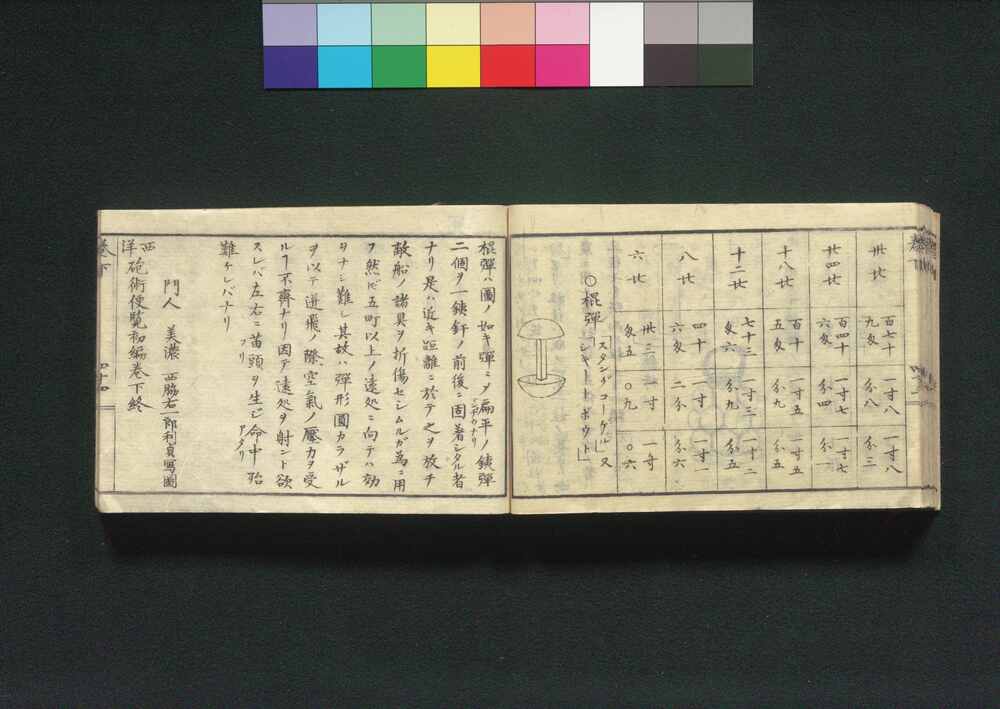 卅卄
百七十
九匁
一寸八
分八
一寸八
分三
廿四卄
百四十
六匁
一寸七
分四
一寸七
分一
十八卄
百十
五匁
一寸五
分
一寸五
分五
十二卄
七十三
匁六
一寸三
分九
一寸三
分五
八卄
四十
六匁
一寸
二分
一寸一
分六
六卄
卅三
匁五
一寸
〇九
一寸
〇六
〇棍彈「スタングコーゲル」又
「シキートボウト」
棍彈ハ圖ノ如キ彈ニメ扁平ノ鐵彈
二個ヲ一鐵釬ノ前後ニ固著シタル者
ナリ是ハ近キ距離ニ於テ之ヲ放チ
敵船ノ諸具ヲ折傷セシムルガ為ニ用
フ然𪜈五町以上ノ遠処ニ向テハ効
ヲナシ難シ其故ハ彈形圓カラザル
ヲ以テ迸飛ノ際空氣ノ壓力ヲ受
ルヿ不齊ナリ因テ遠処ヲ射ント欲
スレバ左右ニ苗頭ヲ生ジ命中殆
フリ
アタリ
難ケレバナリ
門人 美濃 西脇右一郎利貞寫圖
西洋砲術便覧初編巻下終
巻下
四十四